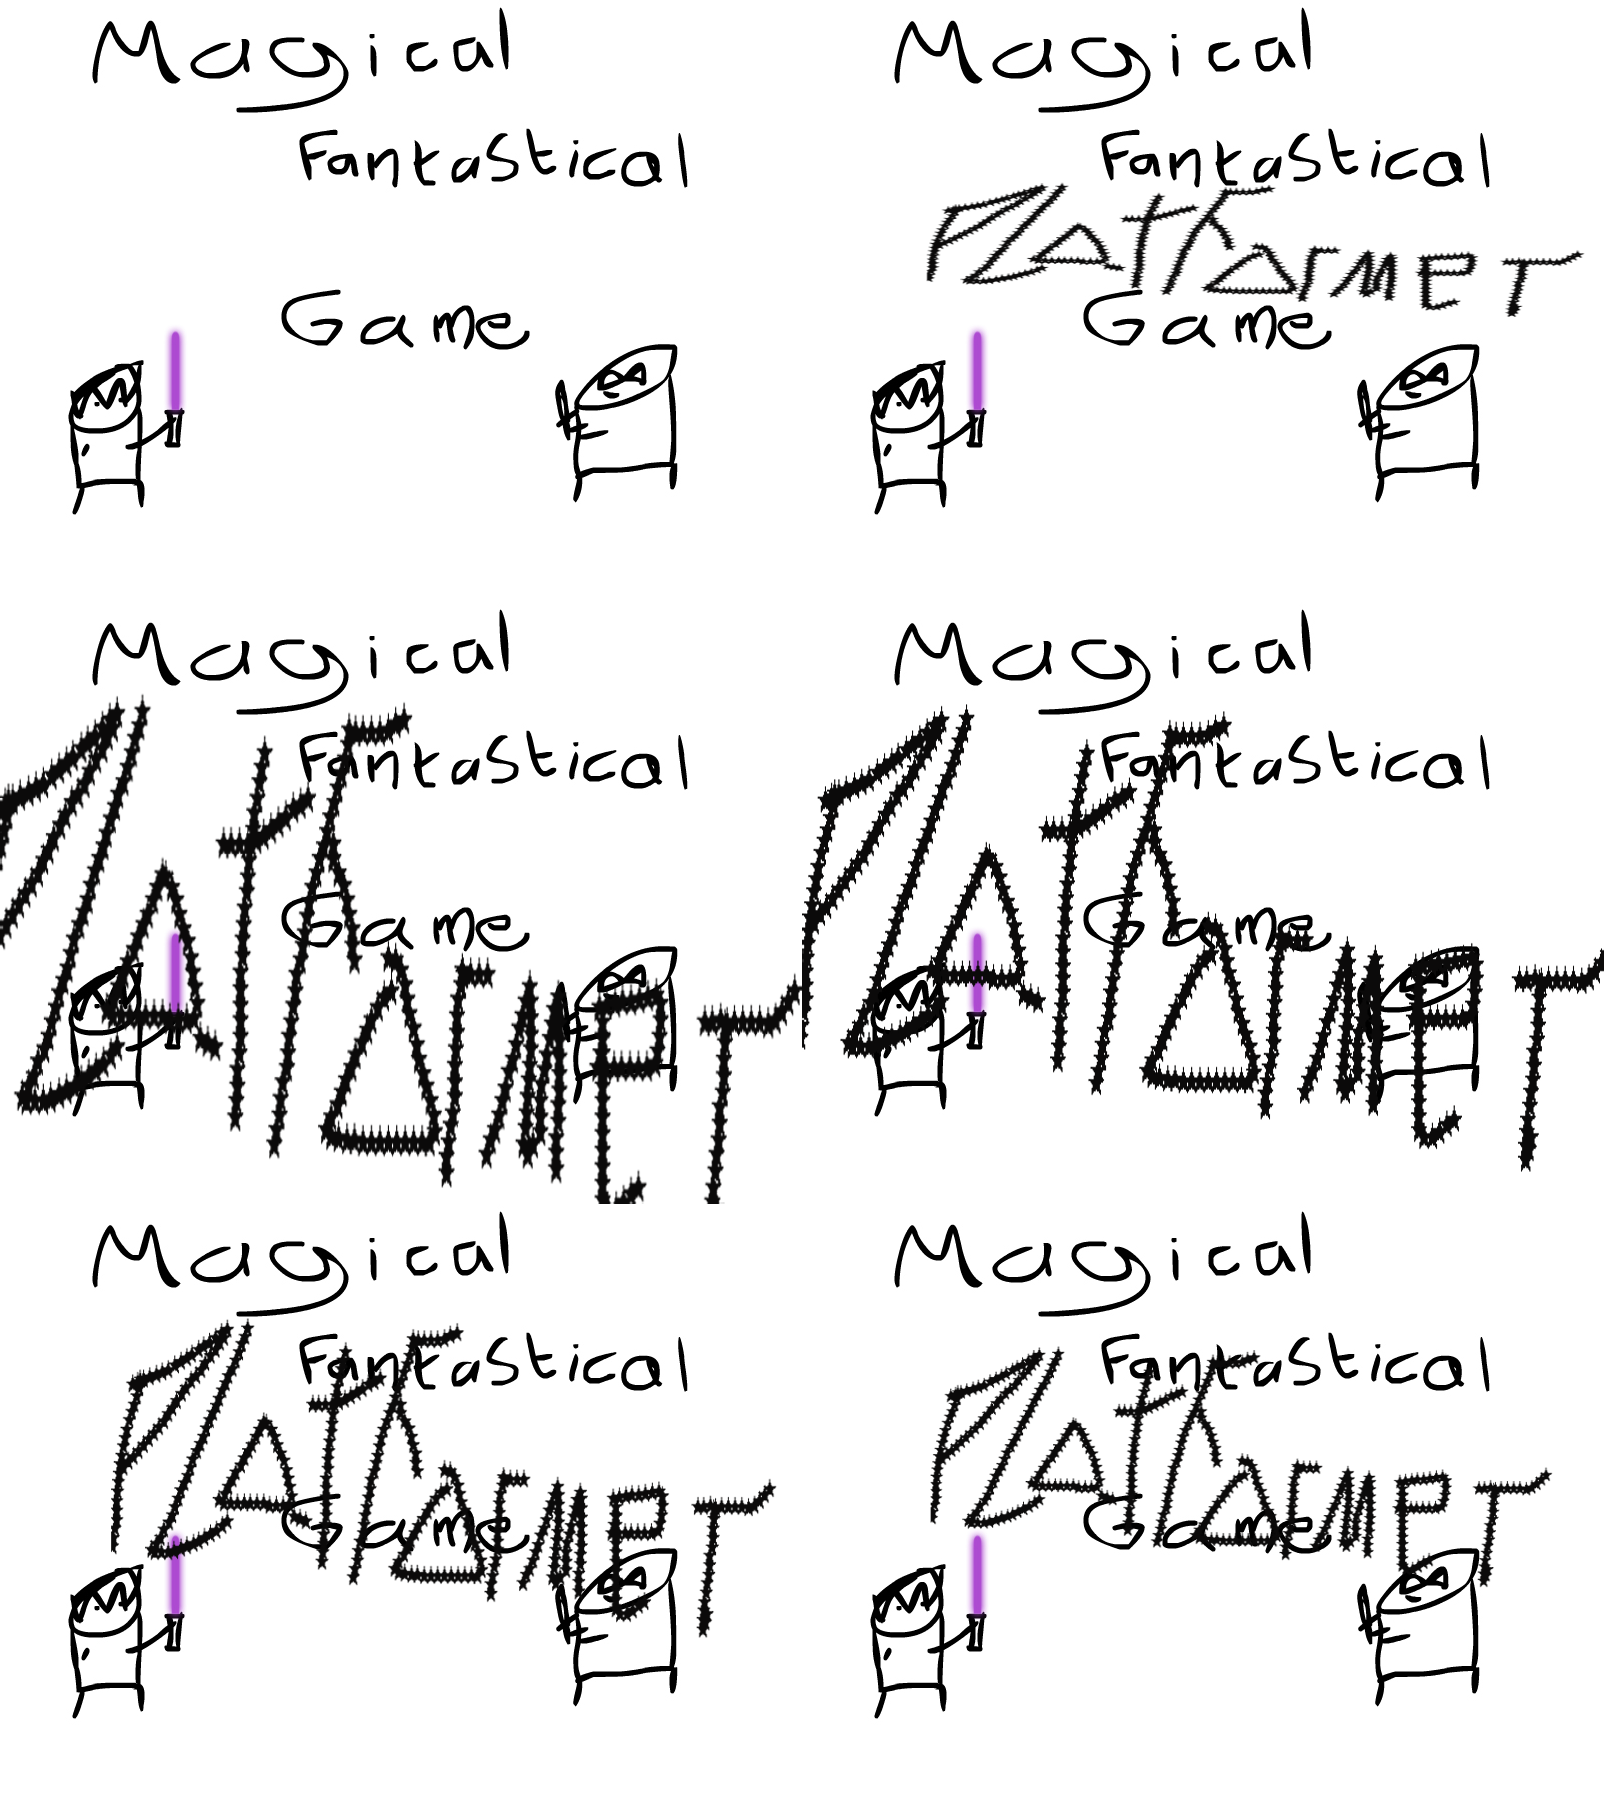 Magical
Fantastical
Game
Magical
Fantastical
Platformer
Game
Magical
Fantastical
Platformer
Game
Magical
Fantastical
Platformer
Game
Magical
Fantastical
Platformer
Game
Magical
Fantastical
Platformer
Game